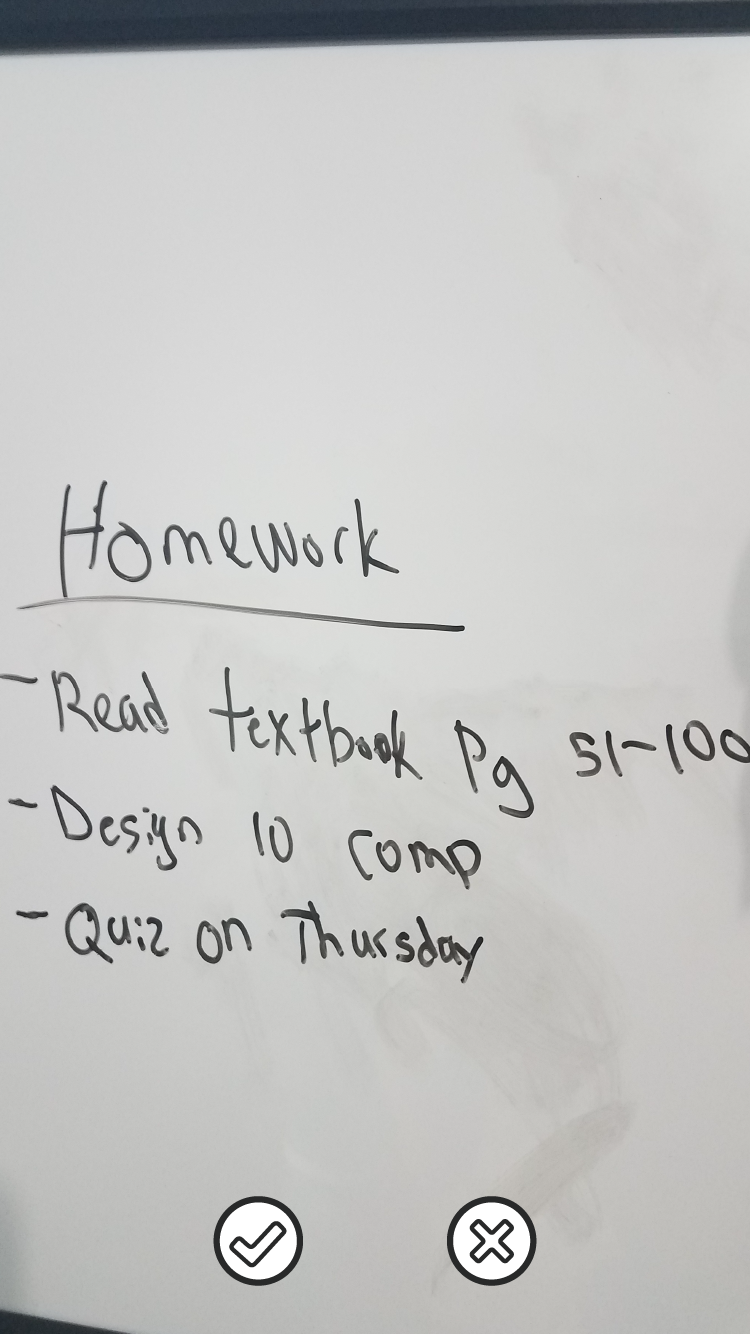 Homework
- Read textbook Pg 51-100
- Design 10 comp
- Quiz on Thursday